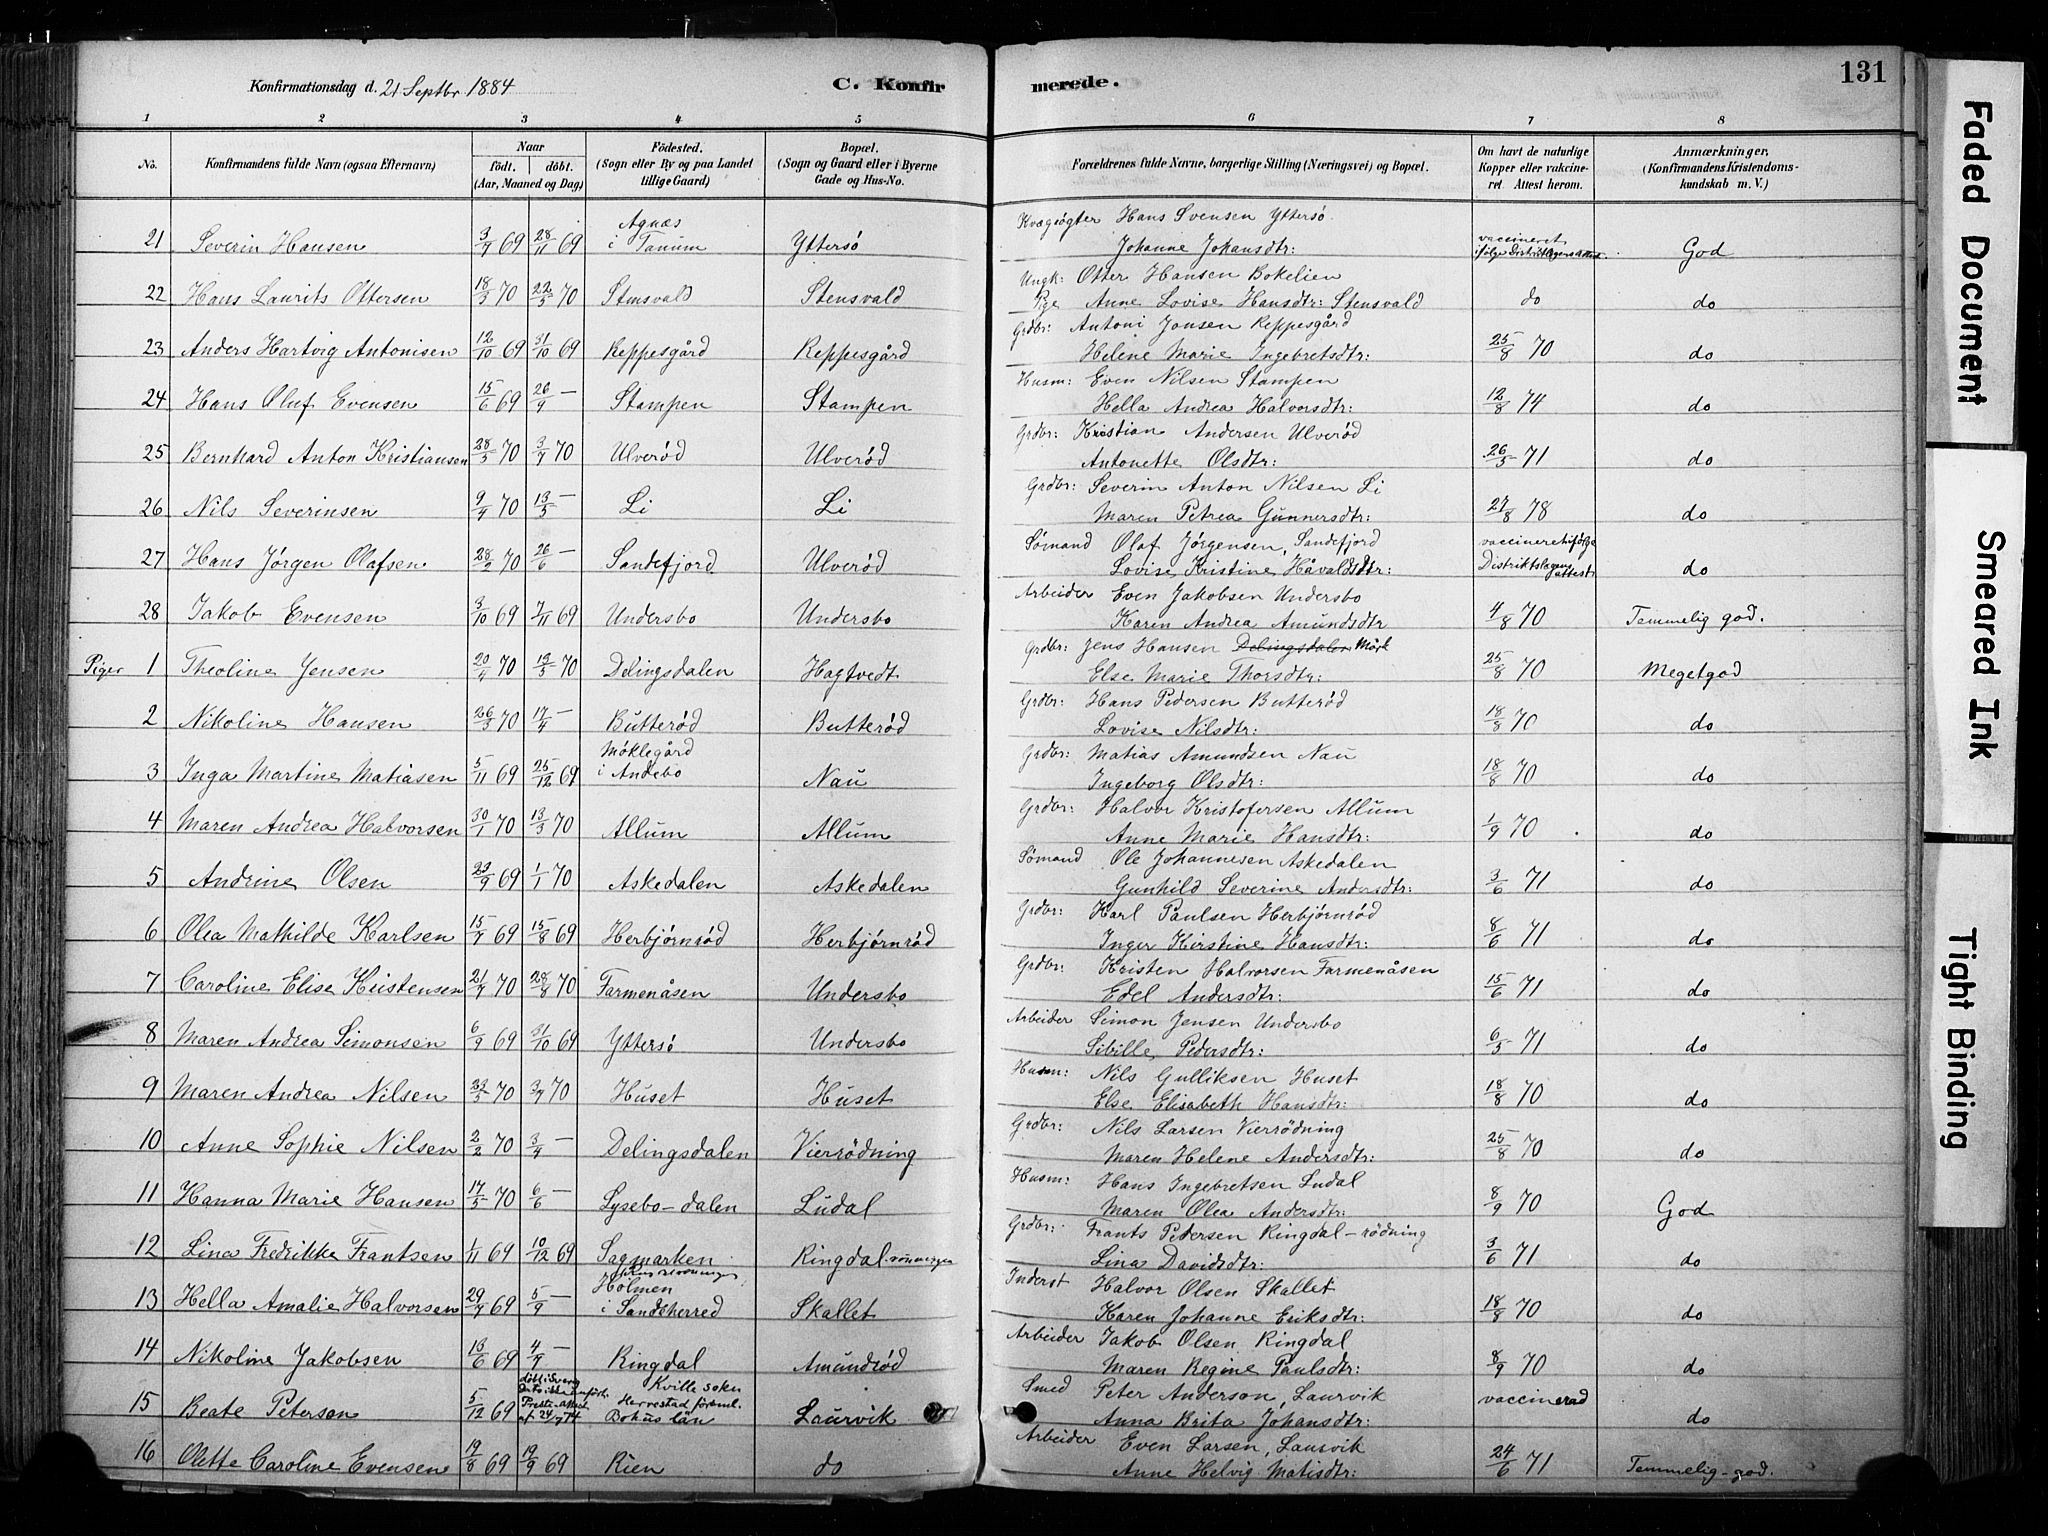 131
Konfirmationsdag d. 21 Septbr 1884 C. Konfir merede.
1 2 3 4 5 6 7 8
No. Konfirmandens fulde Navn (ogsaa Efternavn) Naar født. døbt. (Aar, Maaned og Dag) Fødested. (Sogn eller By og paa Landet tillige Gaard) Bopæl. (Sogn og Gaard eller i Byerne Gade og Hus-No. Forældrenes fulde Navne, borgerlige Stilling (Næringsvei) og Bopæl. Om havt de naturlige Kopper eller vakcineret. Attest herom. Anmærkninger. (Konfirmandens Kristendomskundskab m. V.)
21 Severin Hansen 3/9 69 28/11 69 Agnæs i Tanum Yttersø Hans Svensen Yttersø
Johanne Johansdtr: vaccineret God
22 Hans Laurits Ottersen 18/3 70 22/5 70 Stensvald Stensvald Ungk: Otter Hansen Bokelien
Pge Anne Lovise Hansdtr: Stensvald do do
23 Anders Hartvig Antonisen 12/10 69 31/10 69 Reppesgård Reppesgård Grdbr: Antoni Jonsen Reppesgård
Helene Marie Ingebretsdtr: 25/8 70 do
24 Hans Oluf Evensen 15/6 69 26/9 — Stampen Stampen Husm: Even Nilsen Stampen
Hella Andrea Halvorsdtr: 12/8 74 do
25 Bernhard Anton Kristiansen 28/5 70 3/7 70 Ulverød Ulverød Grdbr: Kristian Andersen Ulverød
Antonette Olsdtr: 26/5 71 do
26 Nils Severinsen 9/4 70 13/5 — Li Li Grdbr: Severin Anton Nilsen Li
Maren Petrea Gunnersdtr: 27/8 78 do
27 Hans Jørgen Olafsen 28/2 70 26/6 — Sandefjord Ulverød Sømand Olaf Jørgensen, Sandefjord
Lovise Kristine Håvaldsdtr: vaccineret ifølge Distriktslægens attest do
28 Jakob Evensen 3/10 69 7/11 69 Undersbo Undersbo Arbeider Even Jakobsen Undersbo
Karen Andrea Amundsdtr 4/8 70 Temmelig god.
Piger 1 Theoline Jensen 20/4 70 13/5 70 Delingsdalen Hagtvedt Grdbr: Jens Hansen Delingsdalen Mørk
Else Marie Thorsdtr: 25/8 70 Megetgod
2 Nikoline Hansen 26/3 70 17/4 — Butterød Butterød Grdbr: Hans Pedersen Butterød
Lovise Nilsdtr: 18/8 70 do
3 Inga Martine Matiasen 5/11 69 25/12 69 Møklegård i Andebo Nau Grdbr: Matias Amundsen Nau
Ingeborg Olsdtr: 18/8 70 do
4 Maren Andrea Halvorsen 30/1 70 13/3 70 Allum Allum Grdbr: Halvor Kristofersen Allum
Anne Marie Hansdtr: 1/9 70 do
5 Andrine Olsen 23/9 69 1/1 70 Askedalen Askedalen Sømand Ole Johannesen Askedalen
Gunhild Severine Andersdtr: 3/6 71 do
6 Olea Mathilde Karlsen 15/7 69 15/8 69 Herbjørnrød Herbjørnrød Grdbr: Karl Paulsen Herbjørnrød
Inger Kirstine Hansdtr: 8/6 71 do
7 Caroline Elise Kristensen 21/7 70 28/8 70 Farmenåsen Undersbo Grdbr: Kristen Halvorsen Farmenåsen
Edel Andersdtr: 15/6 71 do
8 Maren Andrea Simonsen 6/9 69 31/10 69 Yttersø Undersbo Arbeider Simon Jensen Undersbo
Sibille Pedersdtr: 6/5 71 do
9 Maren Andrea Nilsen 23/5 70 3/7 70 Huset Huset Husm: Nils Gulliksen Huset
Else Elisabeth Hansdtr: 18/8 70 do
10 Anne Sophie Nilsen 2/2 70 3/4 — Delingsdalen Vierrödning Grdbr: Nils Larsen Vierrödning
Maren Helene Andersdtr: 25/8 70 do
11 Hanna Marie Hansen 17/5 70 6/6 — Lysebo-dalen Ludal Husm: Hans Ingebretsen Ludal
Maren Olea Andersdtr: 8/9 70 God
12 Lina Fredrikke Frantsen 1/11 69 10/12 69 Sagmarken Ringdal Grdbr: Frants Petersen Ringdal-rødning
Lina Davidsdtr: 3/6 71 do
13 Hella Amalie Halvorsen 29/7 69 5/9 — Holmen i Sandeherred Skallet Inderst Halvor Olsen Skallet
Karen Johanne Eriksdtr: 18/8 70 do
14 Nikoline Jakobsen 13/6 69 4/9 — Ringdal Amundrød Arbeider Jakob Olsen Ringdal
Maren Regine Paulsdtr: 8/9 70 do
15 Beate Petersen 5/12 69 Kville sokn Herrestad Bohus län Laurvik Smed Peter Anderson, Laurvik
Anna Brita Johansdtr: vaccinerad do
16 Olette Caroline Evensen 19/8 69 19/9 69 Rien do Arbeider Even Larsen, Laurvik
Anne Helvig Matisdtr: 24/6 71 Temmelig-god.
Faded Document
Smeared Ink
Tight Binding